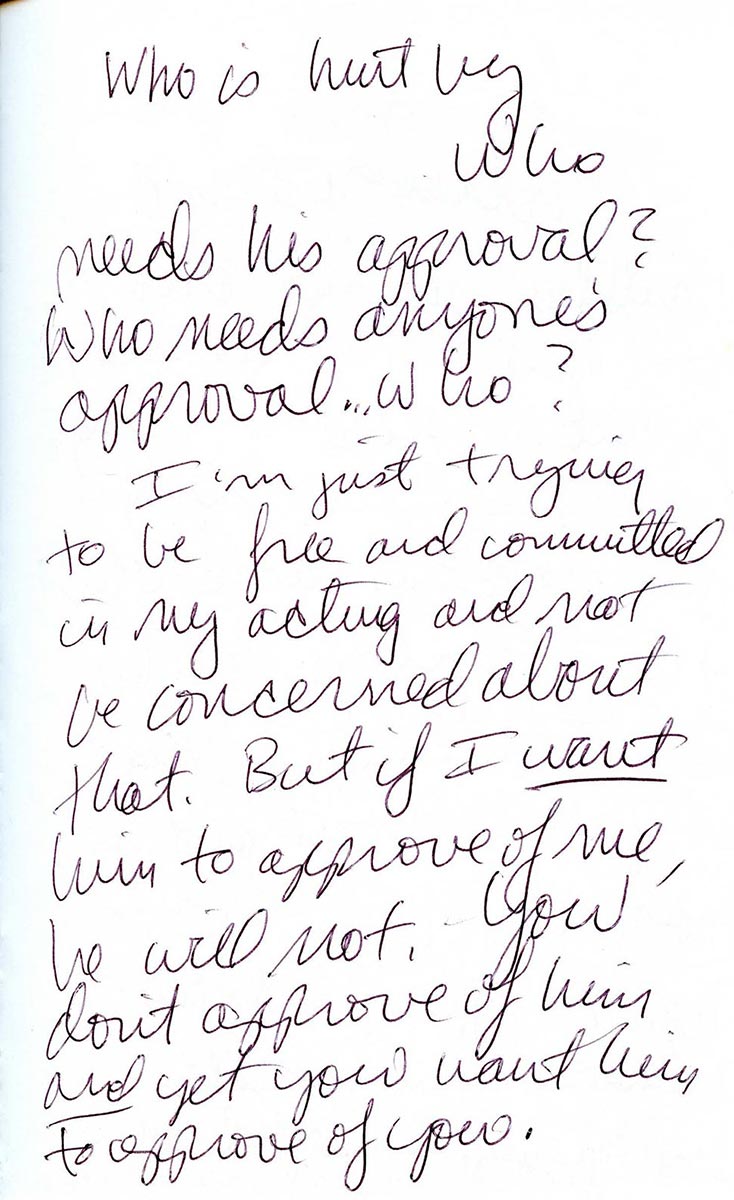 Who is hurt by
who
needs his approval?
Who needs anyone's
approval...who?
I'm just trying
to be free and committed
in my acting and not
be concerned about
that. But if I want
him to approve of me,
he will not. You
don't approve of him
and yet you want him
to approve of you.